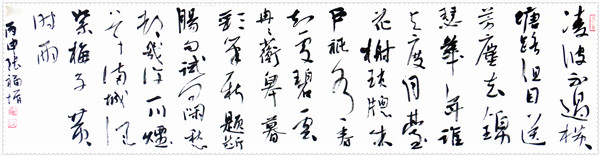 凌波不過橫
塘路但目送
芳塵去錦
瑟華年誰
與度月臺
花榭瑣窗朱
戶祗有春
知處碧雲
冉冉蘅皋暮
彩筆新題斷
腸句試問閑愁
都幾許一川煙
草滿城風
絮梅子黃
時雨
丙申